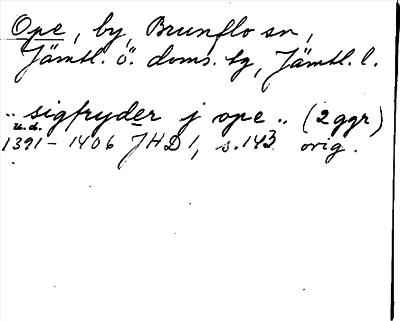 Ope, by, Brunflo sn,
Jämtl. ö. doms. tg, Jämtl. l.
.. sigfryder j ope .. (2 ggr)
u.d.
1391-1406 JHD 1, s. 143 orig.